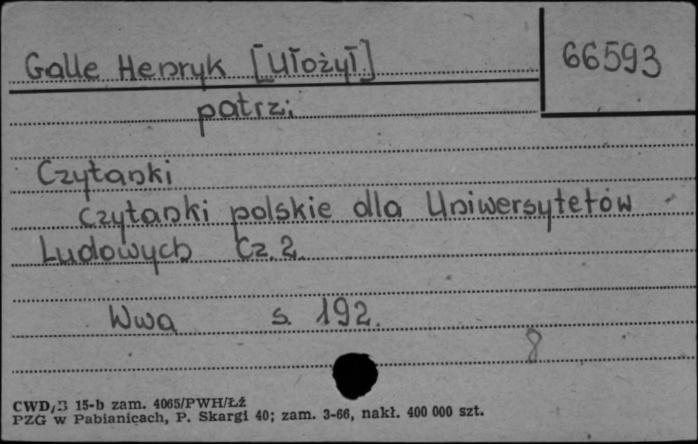 Galle Henryk [Ułożył]
66593
patrz:
Czytanki
Czytanki polskie dla Uniwersytetów
Ludowych Cz. 2.
Wwa s. 192.
8
CWD/B 15-b zam. 4065/PWH/Łź
PZG w Pabianicach, P. Skargi 40; zam. 3-66, nakł. 400 000 szt.